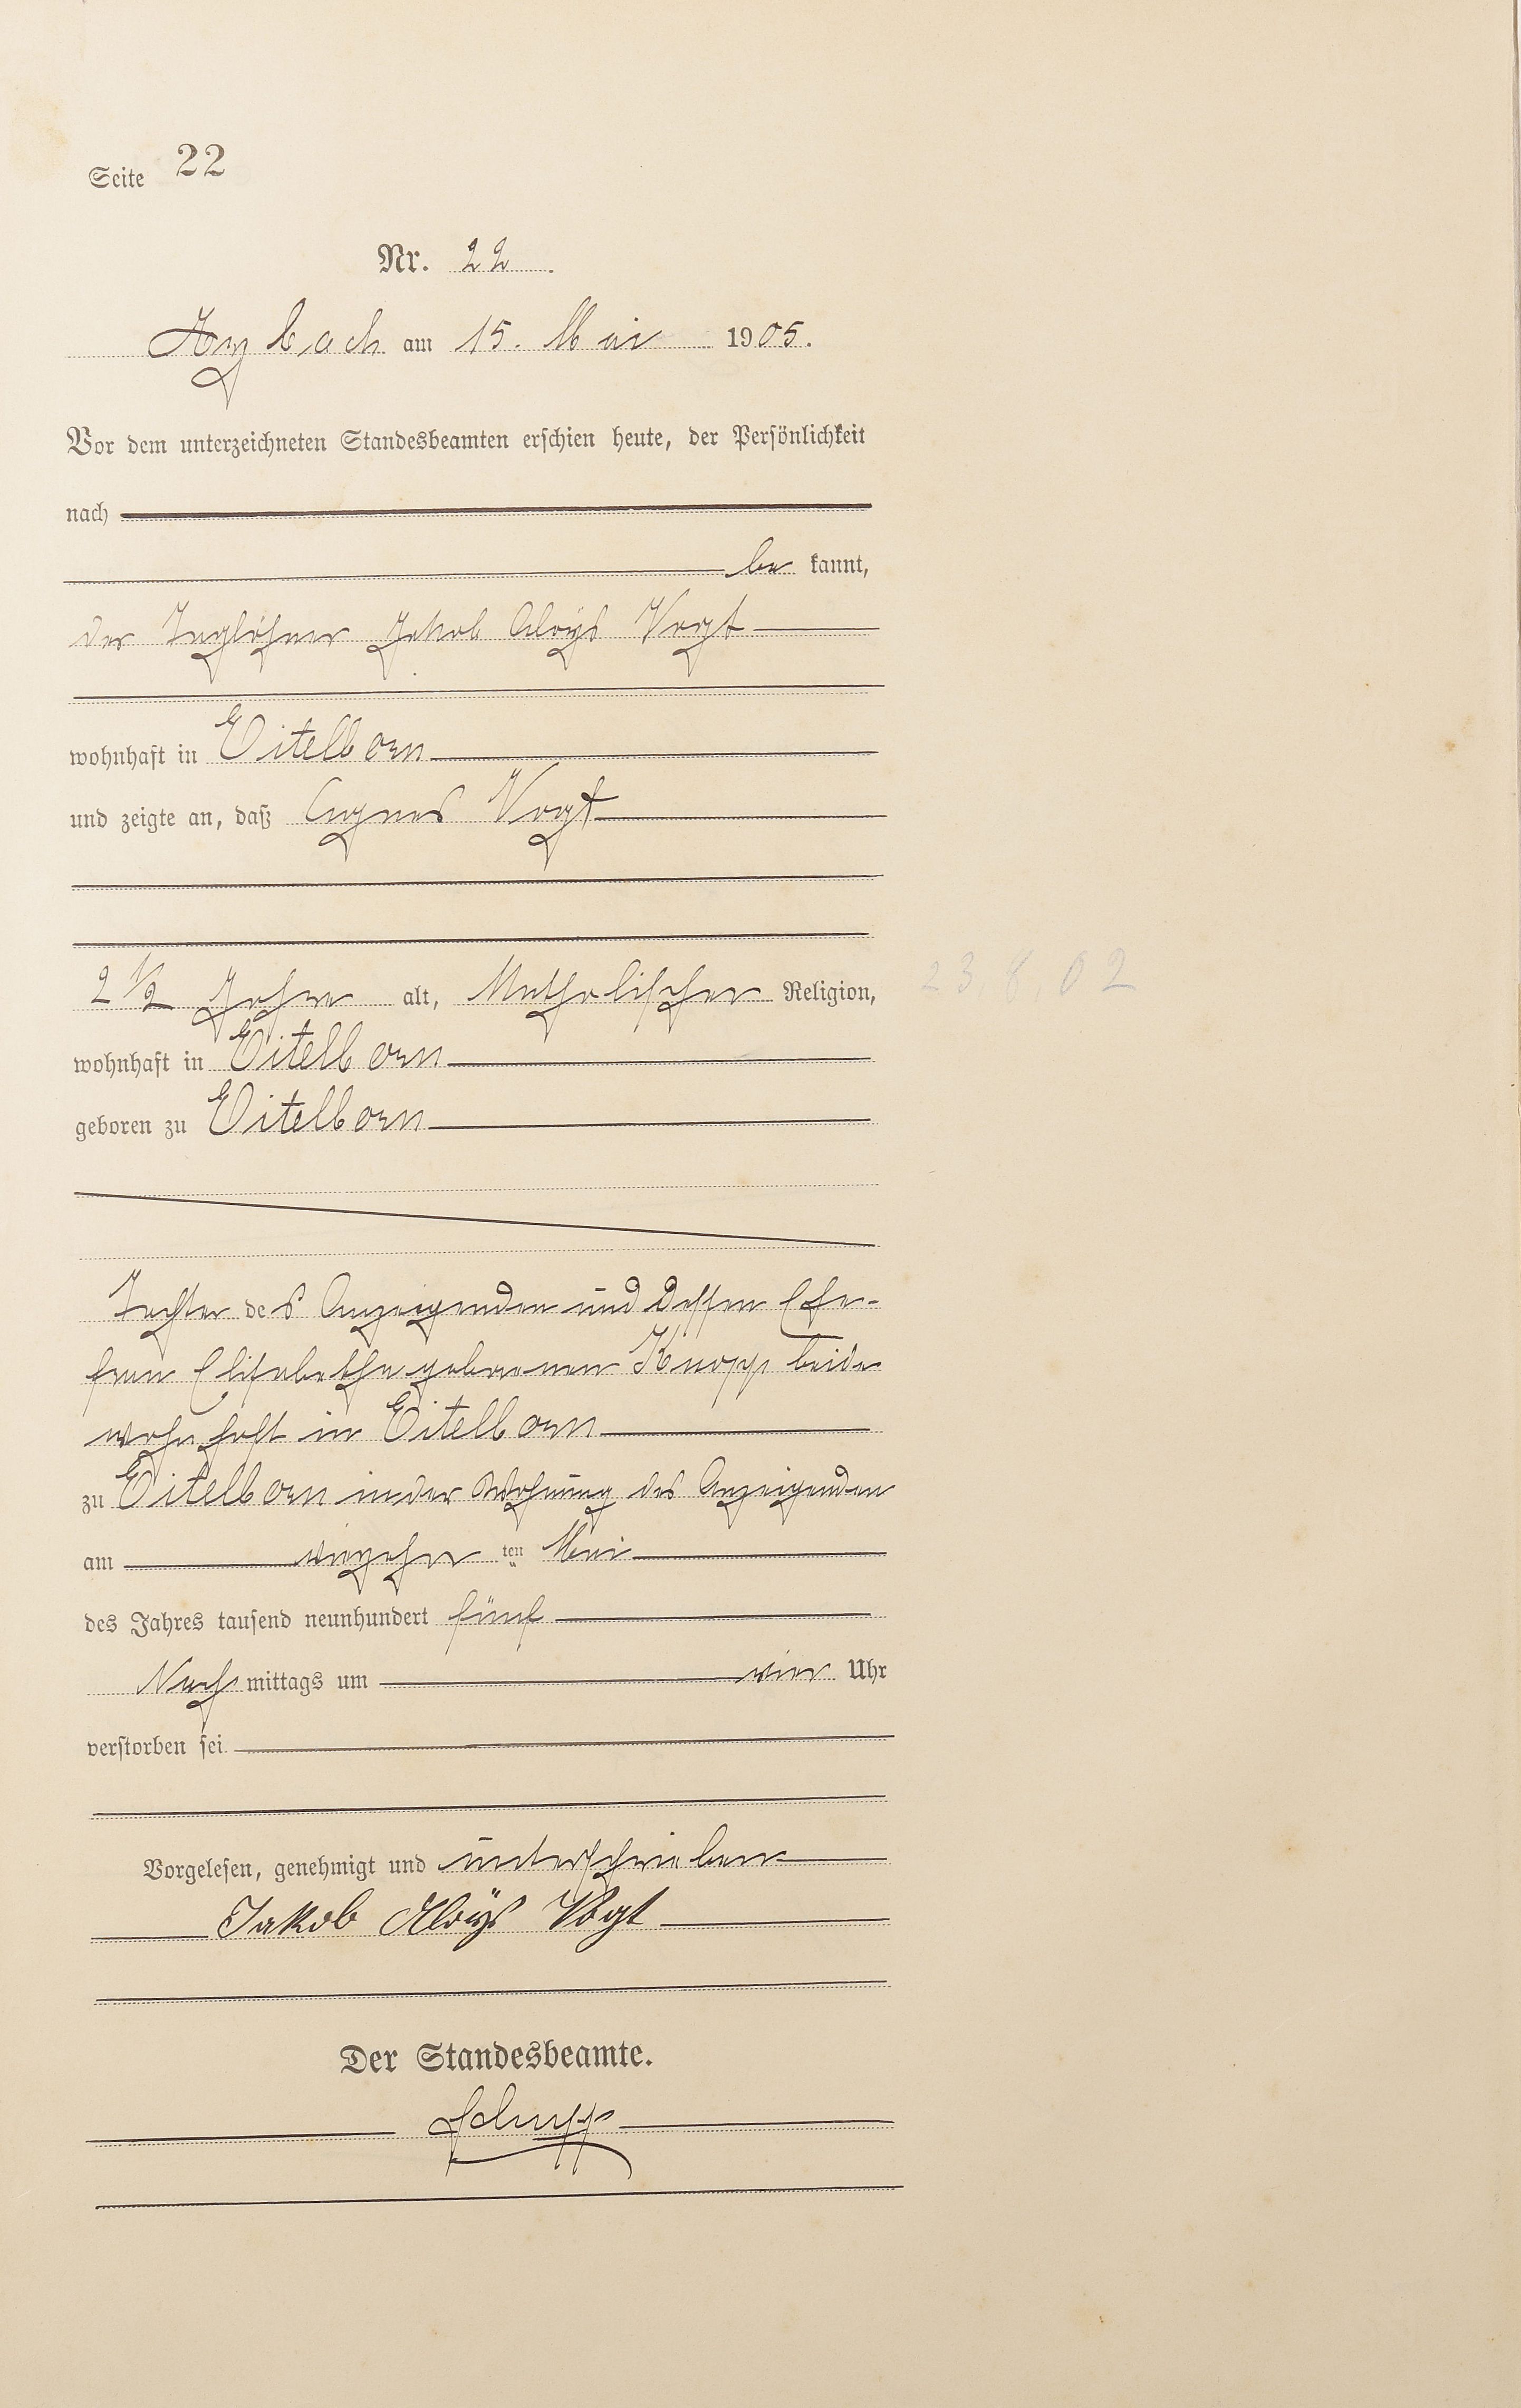 Seite 22
Nr. 22.
Arzbach am 15. Mai 1905.
Vor dem unterzeichneten Standesbeamten erschien heute, der Persönlichkeit
nach
be kannt,
der Taglöhner Jakob Aloys Vogt
wohnhaft in Eitelborn
und zeigte an, daß Agnes Vogt
2 1/2 Jahre alt, katholischer Religion,
23.8.02
wohnhaft in Eitelborn
geboren zu Eitelborn
Tochter des Anzeigenden und dessen Ehe-
frau Elisabetha geborenen Knopp beide
wohnhaft in Eitelborn
zu Eitelborn in der Wohnung des Anzeigenden
am vierzehn ten Mai
des Jahres tausend neunhundert fünf
Nach mittags um vier Uhr
verstorben sei.
Vorgelesen, genehmigt und unterschrieben
Jakob Aloys Vogt
Der Standesbeamte.
Schupp